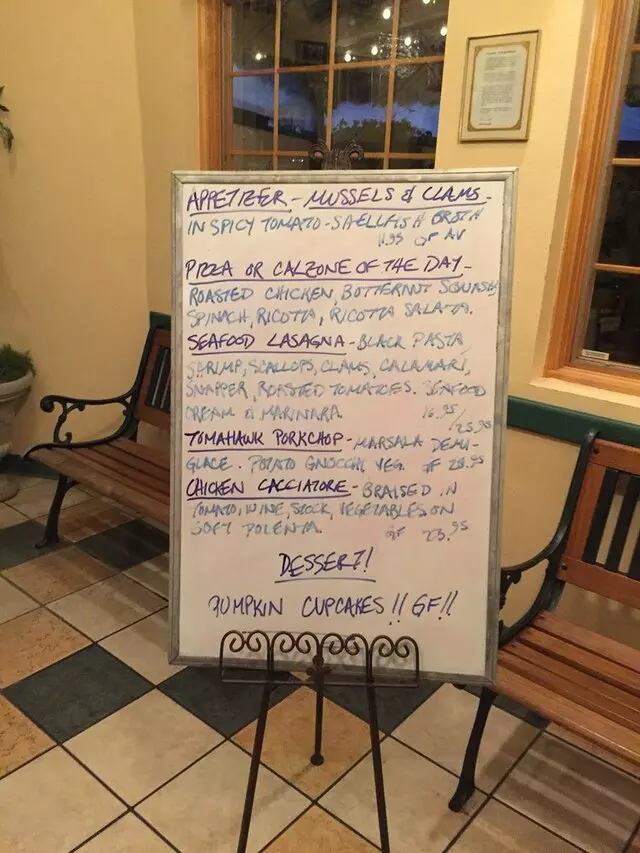 APPETIZER - MUSSELS & CLAMS -
IN SPICY TOMATO - SHELLFISH BROTH
11.95 GF AV
PIZZA OR CALZONE OF THE DAY -
ROASTED CHICKEN, BUTTERNUT SQUASH
SPINACH, RICOTTA, RICOTTA SALATA.
SEAFOOD LASAGNA - BLACK PASTA,
SHRIMP, SCALLOPS, CLAMS, CALAMARI,
SNAPPER, ROASTED TOMATOES. SEAFOOD
CREAM & MARINARA 16.95/25.95
TOMAHAWK PORKCHOP - MARSALA DEMI-
GLACE. POTATO GNOCCHI, VEG. GF 28.95
CHICKEN CACCIATORE - BRAISED IN
TOMATO, WINE, STOCK, VEGETABLES ON
SOFT POLENTA. GF 23.95
DESSERT!
PUMPKIN CUPCAKES!! GF!!